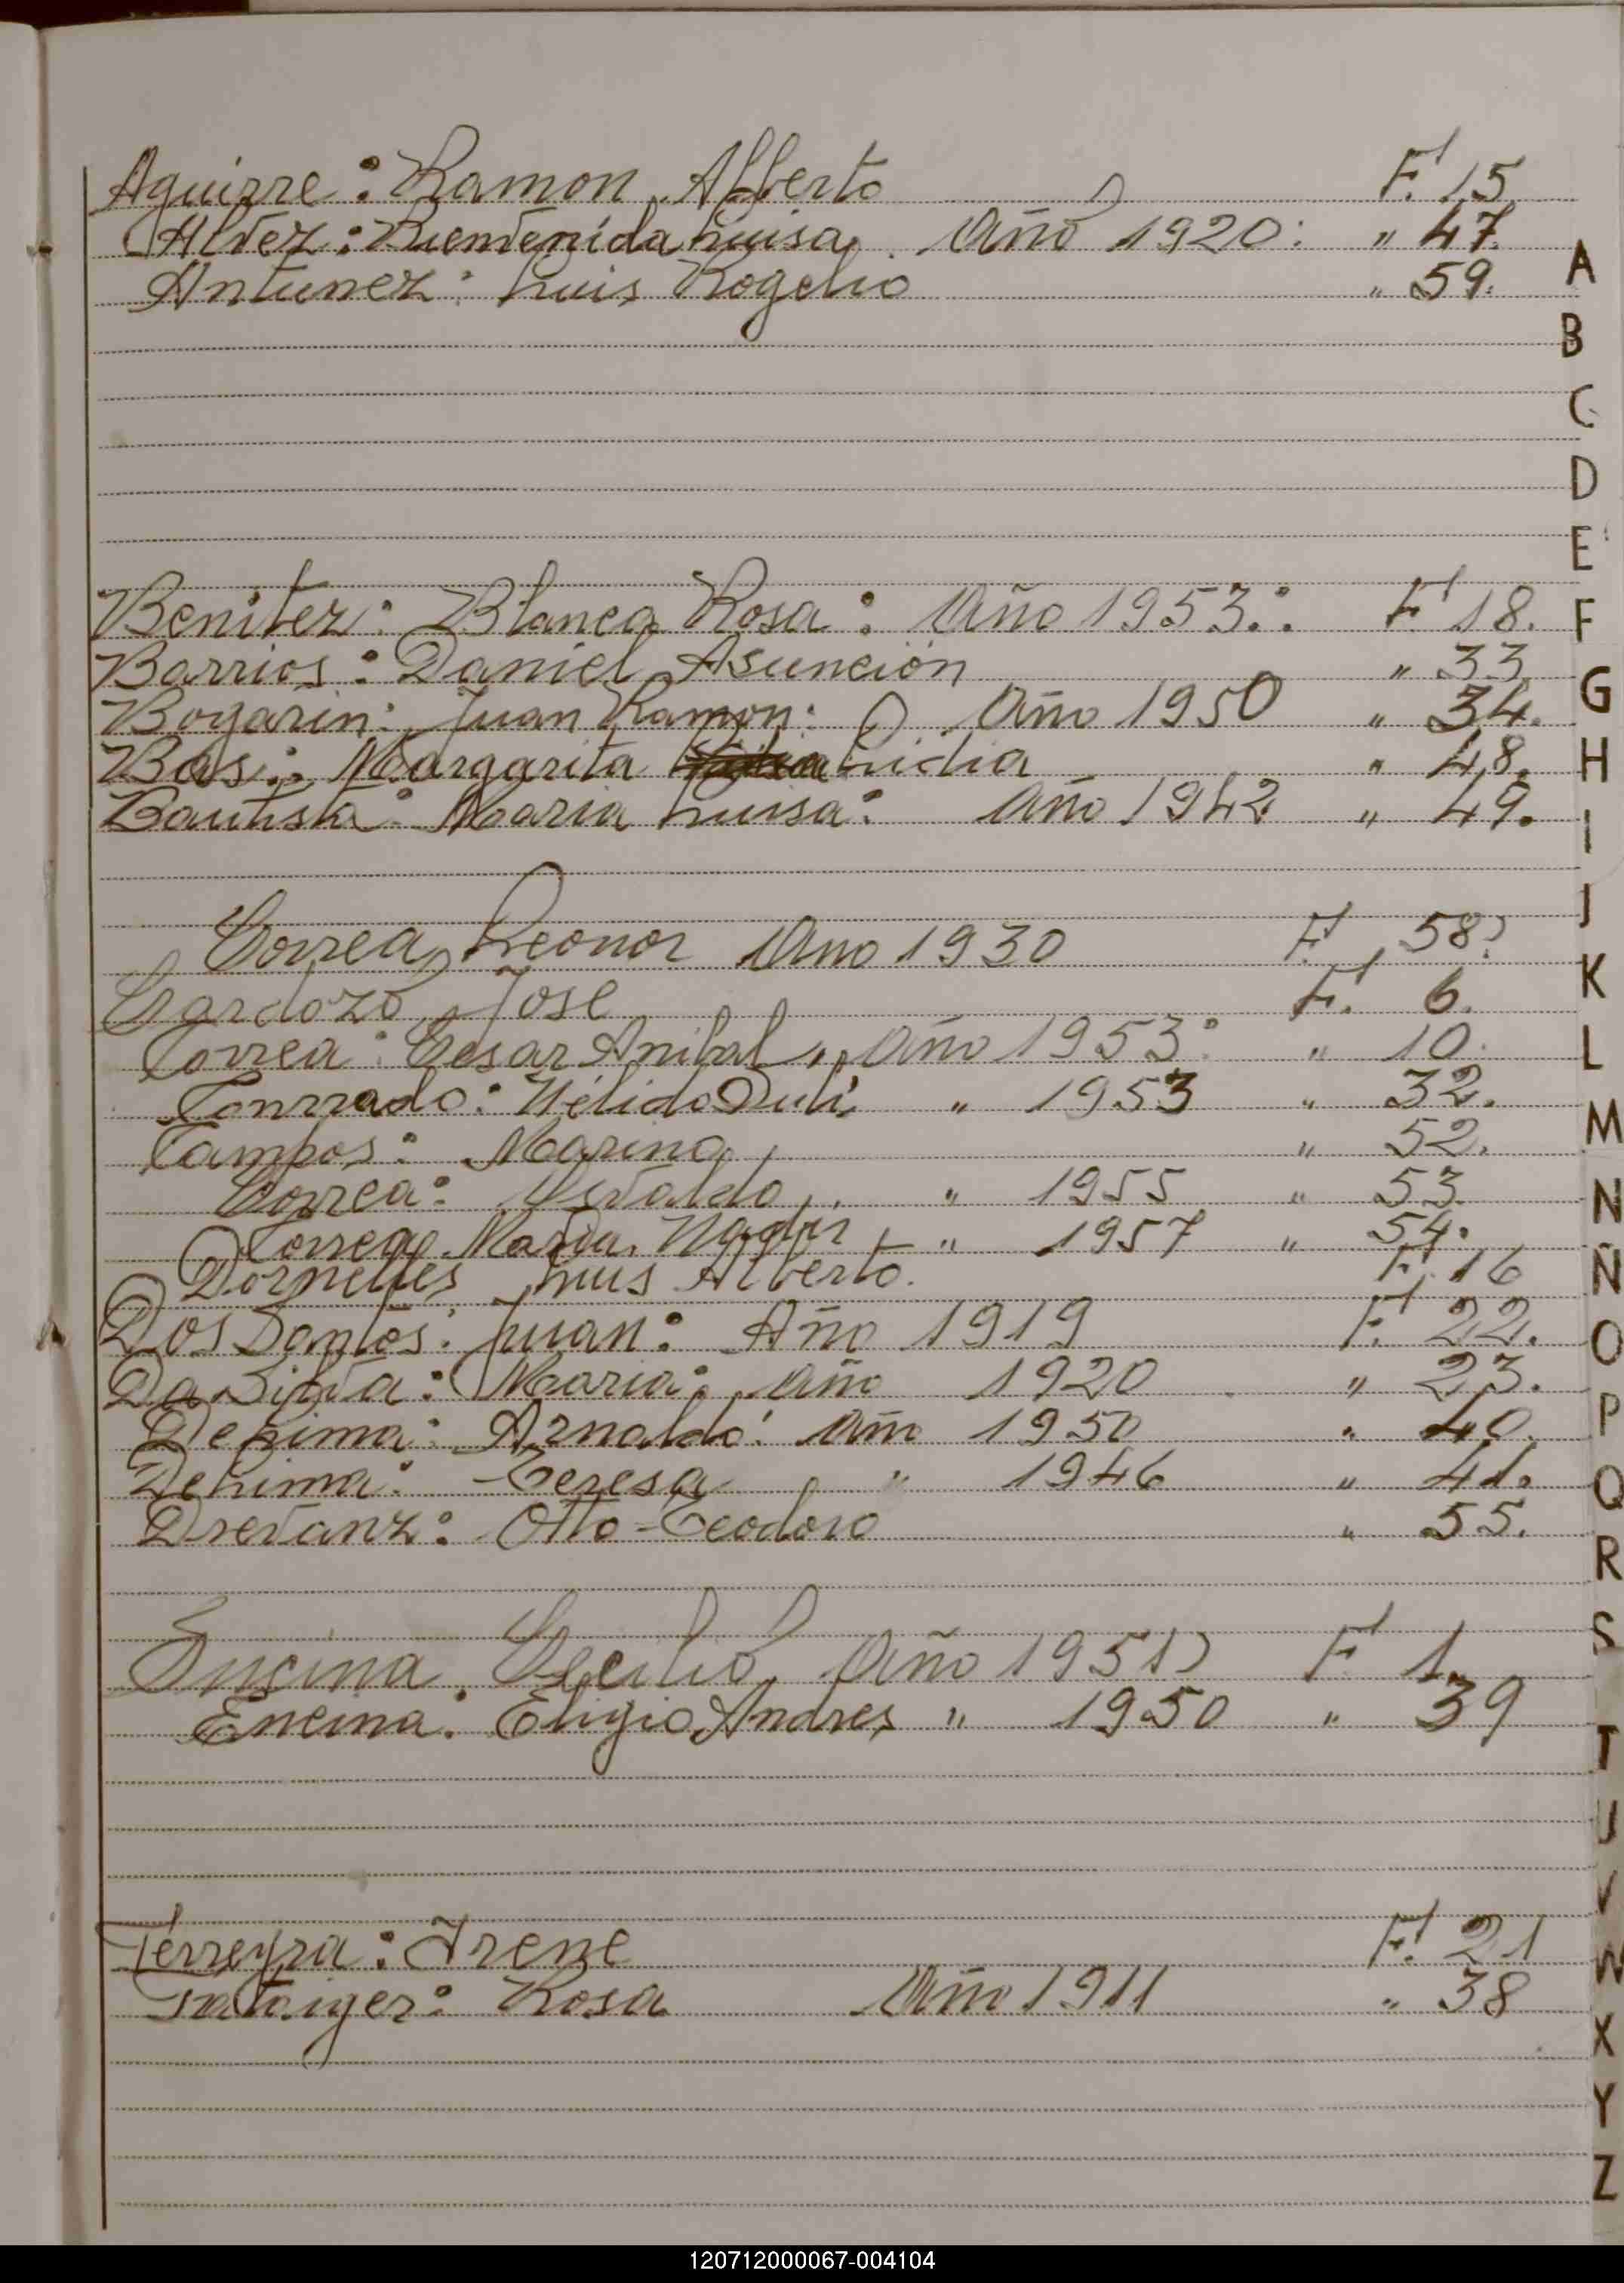 Aguirre: Ramon Alberto F. 15
Alvez: Bienvenida Luisa. Año 1920: " 47.
Antunez: Luis Rogelio " 59.
Benitez: Blanca Rosa: Año 1953: F. 18.
Barrios: Daniel Asunción " 33
Bogarin: Juan Ramon: Año 1950 " 34.
Bas: Margarita Lidia " 48.
Bautista: Maria Luisa: Año 1942 " 49.
Correa, Leonor Año 1930 F. 58
Cardozo, Jose F. 6.
Correa: Cesar Anibal " Año 1953: " 10.
Conrrado: Nélida " 1953 " 32.
Campos: Marina " 52.
Correa: Osvaldo " 1955 " 53.
Correa Maria " 1957 " 54.
Dornelles Luis Alberto. F. 16
Dos Santos: Juan: Año 1919 F. 22.
Da Silva: Maria: Año 1920 " 23.
Delima: Arnaldo: Año 1950 " 40.
Delima: Teresa " 1946 " 41.
Drevanz: Otto-Teodoro " 55.
Encina Cecilio Año 1951 F. 1.
Encina: Eligio Andres " 1950 " 39
Ferreyra: Irene F. 21
Rosa Año 1911 " 38
A
B
C
D
E
F
G
H
I
J
K
L
M
N
Ñ
O
P
Q
R
S
T
U
V
W
X
Y
Z
120712000067-004104